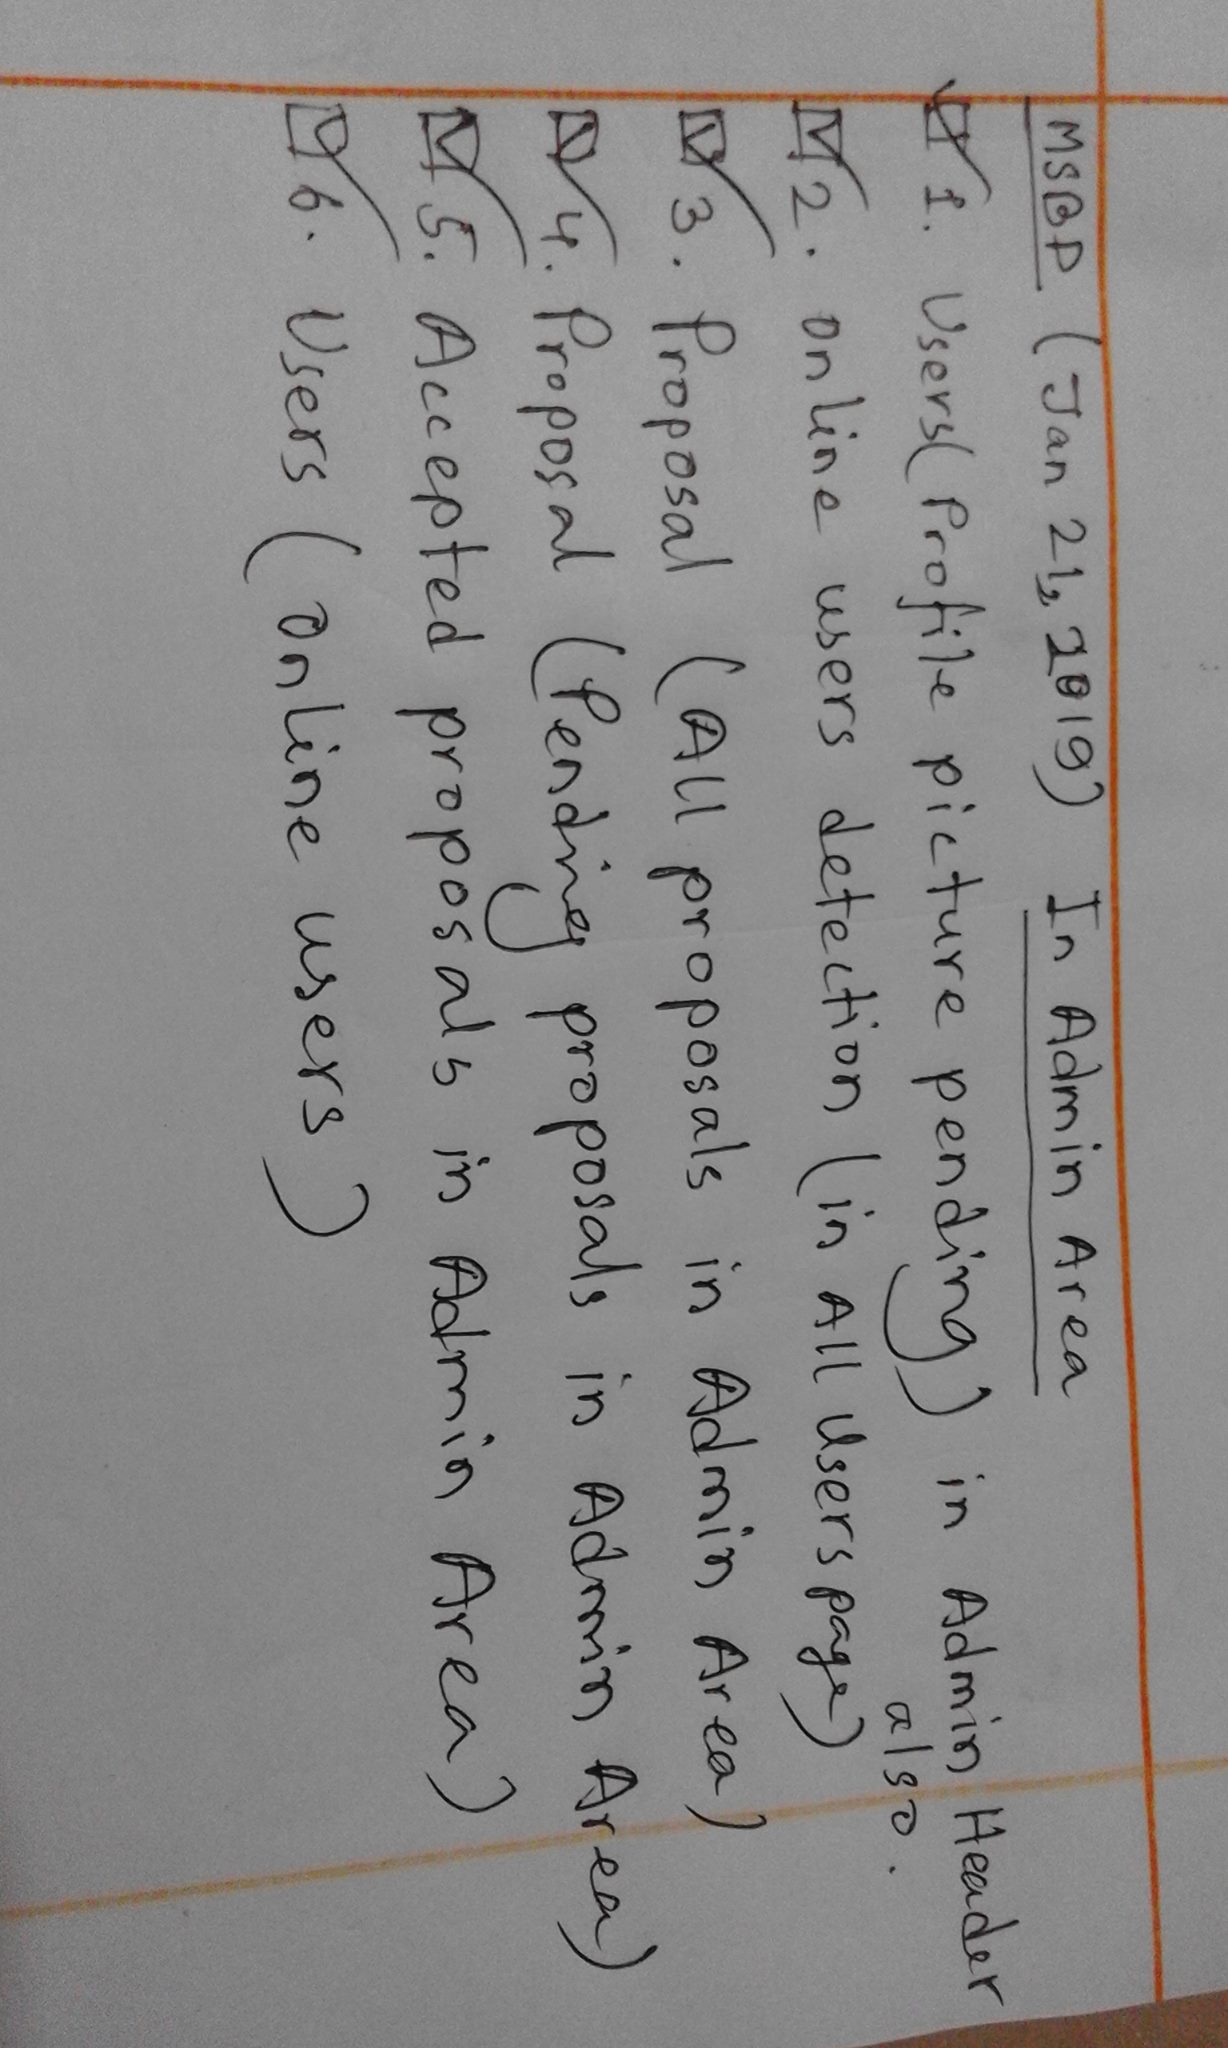 MSBD (Jan 21, 2019) In Admin Area
☑ 1. Users( Profile picture pending) in Admin Header
also.
☑ 2. Online users detection (in All Users page)
☑ 3. Proposal (All proposals in Admin Area)
☑ 4. Proposal (Pending proposals in Admin Area)
☑ 5. Accepted proposals in Admin Area)
☑ 6. Users (Online users)